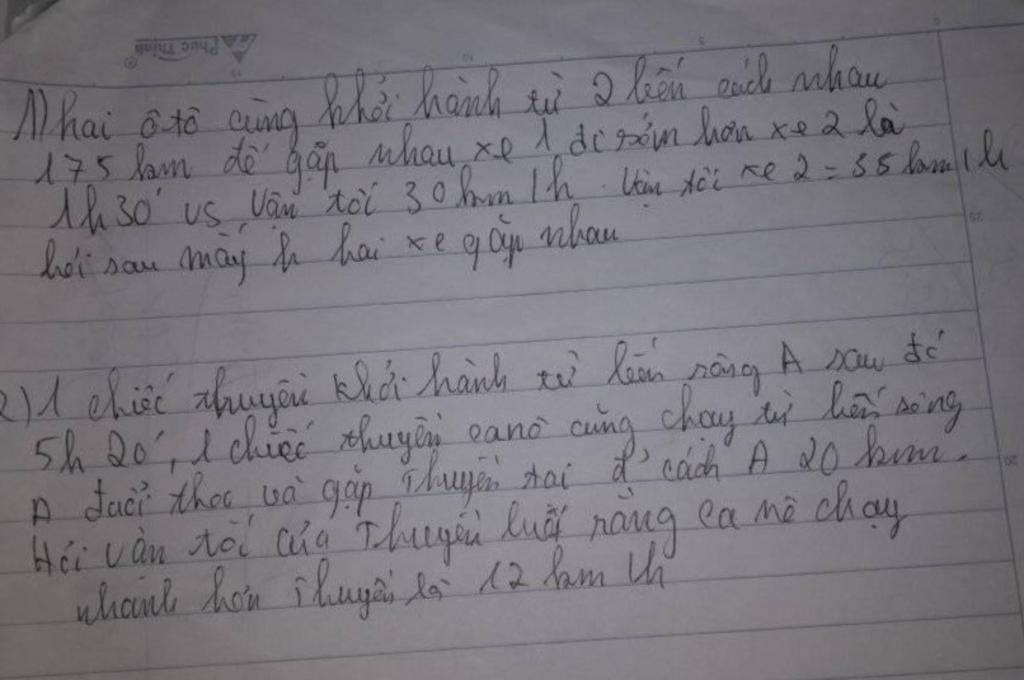 Phúc Thịnh
1) hai ô tô cùng khởi hành từ 2 bến cách nhau
175 km để gặp nhau xe 1 đi sớm hơn xe 2 là
1h30' vs vận tốc 30km/h. Vận tốc xe 2 = 35 km/h
hỏi sau mấy h hai xe gặp nhau
2) 1 chiếc thuyền khởi hành từ bến sông A sau đó
5h 20', 1 chiếc thuyền canô cũng chạy từ bến sông
A đuổi theo và gặp thuyền tại đ' cách A 20 km.
Hỏi vận tốc của Thuyền biết rằng ca nô chạy
nhanh hơn Thuyền là 12 km/h